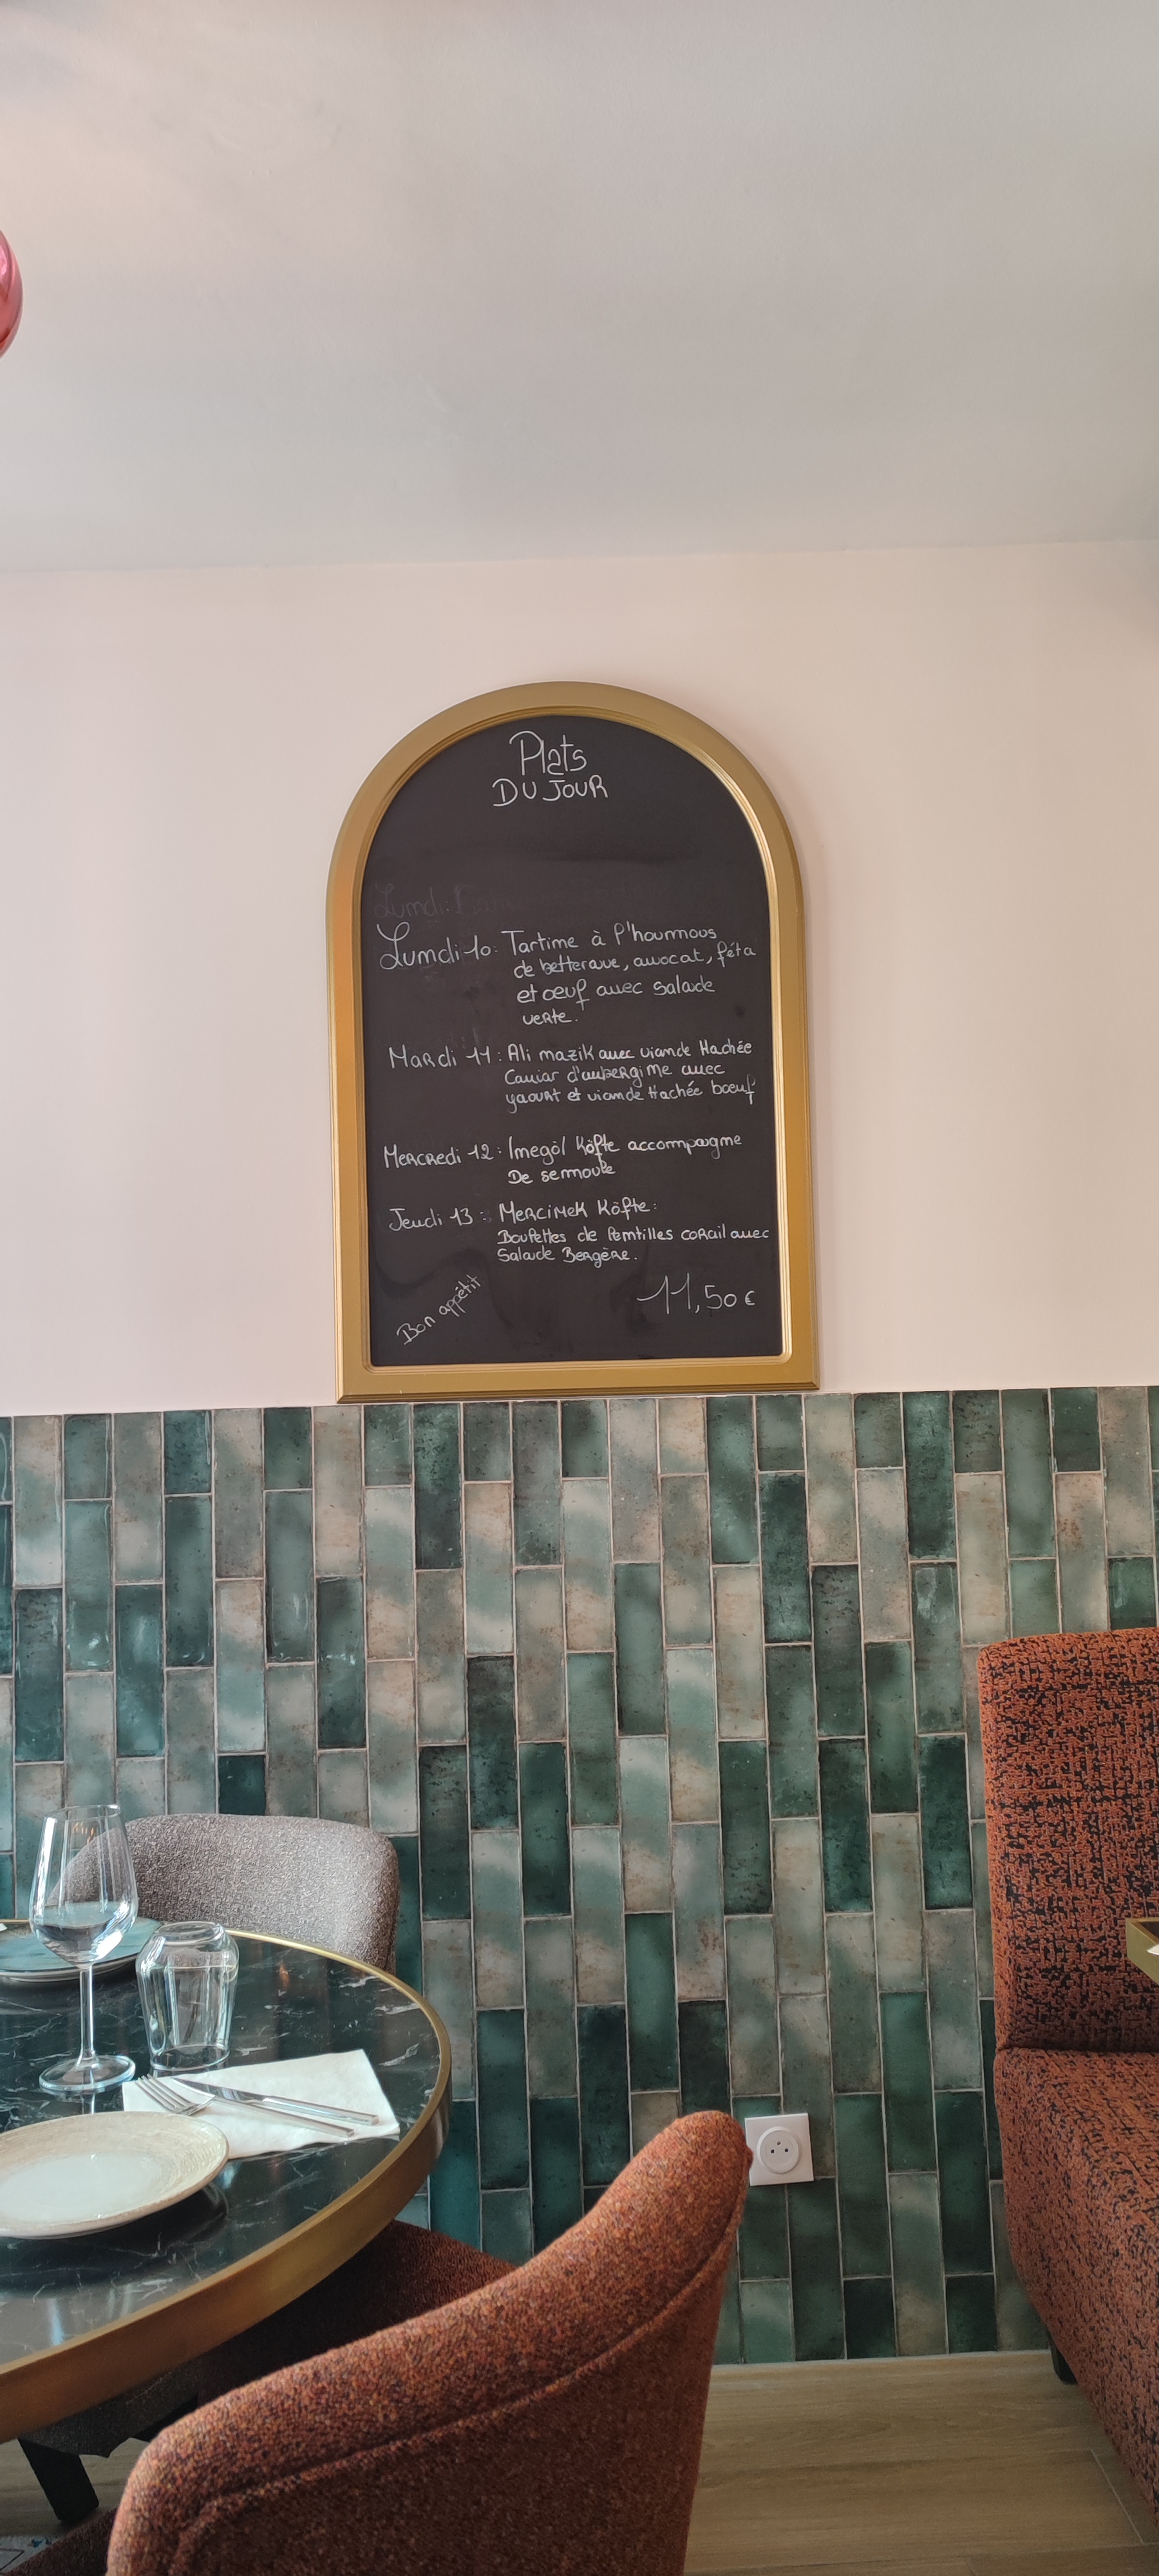 Plats
DU JOUR
Lundi:
Lundi 10: Tartine à l'houmous
de betterave, avocat, féta
et œuf avec salade
verte.
Mardi 11: Ali mazik avec viande Hachée
Caviar d'aubergine avec
yaourt et viande Hachée bœuf
Mercredi 12: Inegöl Köfte accompagne
De semoule
Jeudi 13: Mercimek Köfte:
Boulettes de lentilles corail avec
Salade Bergère.
Bon appétit
11,50 €